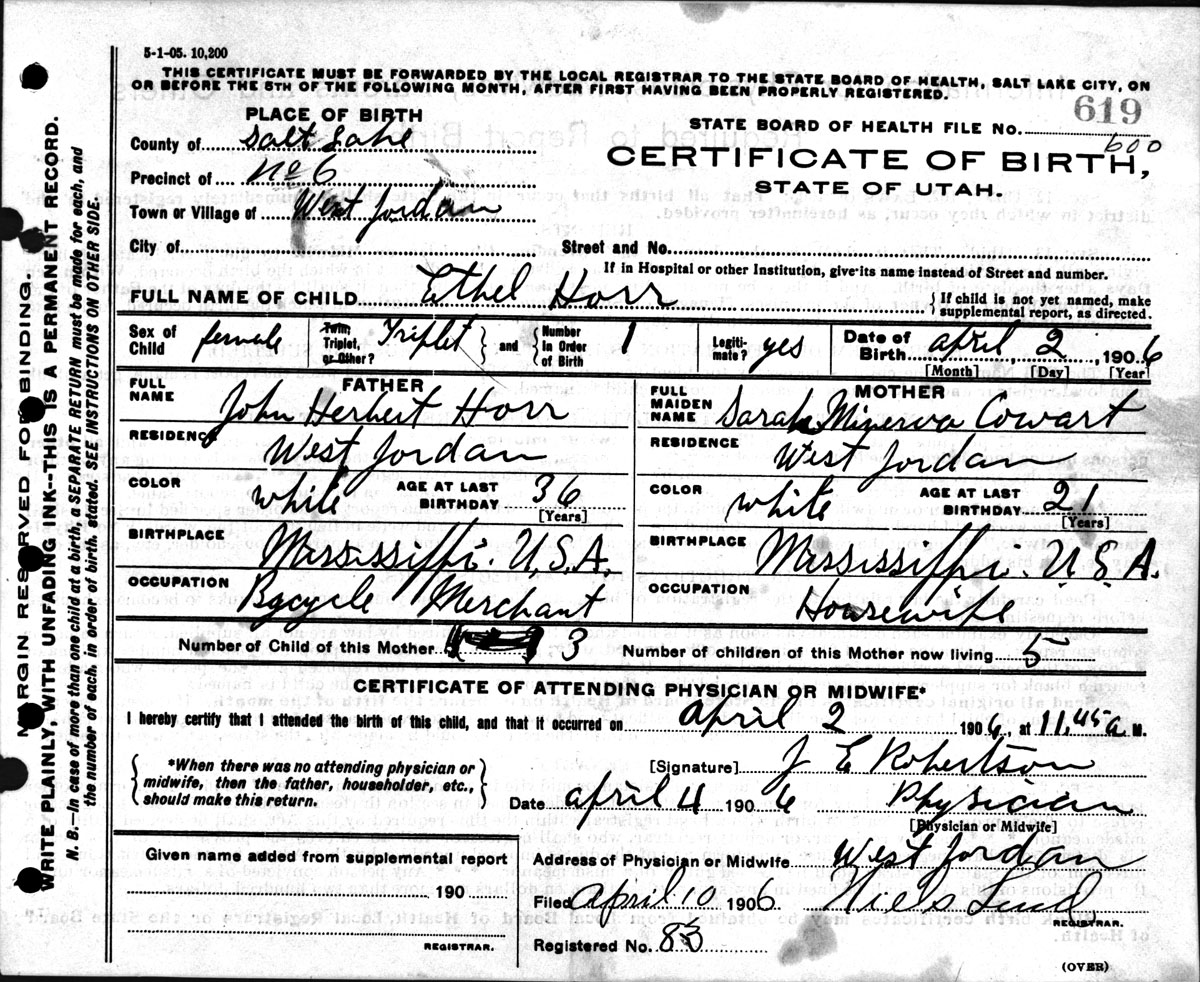 5-1-05. 10,200
THIS CERTIFICATE MUST BE FORWARDED BY THE LOCAL REGISTRAR TO THE STATE BOARD OF HEALTH, SALT LAKE CITY, ON
OR BEFORE THE 5TH OF THE FOLLOWING MONTH, AFTER FIRST HAVING BEEN PROPERLY REGISTERED.
619
PLACE OF BIRTH
STATE BOARD OF HEALTH FILE NO.
600
County of Salt Lake
CERTIFICATE OF BIRTH,
Precinct of No 6
STATE OF UTAH.
Town or Village of West Jordan
City of Street and No.
If in Hospital or other Institution, give its name instead of Street and number.
FULL NAME OF CHILD Ethel Horr { If child is not yet named, make supplemental report, as directed.
Sex of Child female Twin, Triplet, or Other? Triplet } and { Number in Order of Birth 1 Legiti-mate? yes Date of Birth April, 2 1906
[Month] [Day] [Year]
FATHER MOTHER
FULL NAME John Herbert Horr FULL MAIDEN NAME Sarah Minerva Cowart
RESIDENCE West Jordan RESIDENCE West Jordan
COLOR white AGE AT LAST BIRTHDAY 36 [Years] COLOR white AGE AT LAST BIRTHDAY 21 [Years]
BIRTHPLACE Mississippi. U.S.A. BIRTHPLACE Mississippi. U.S.A.
OCCUPATION Bycycle Merchant OCCUPATION Housewife
Number of Child of this Mother 3 Number of children of this Mother now living 5
CERTIFICATE OF ATTENDING PHYSICIAN OR MIDWIFE*
I hereby certify that I attended the birth of this child, and that it occurred on April 2 1906, at 11,45 a M.
{ *When there was no attending physician or midwife, then the father, householder, etc., should make this return. }
[Signature] J E Robertson
Date April 4 1906 Physician
[Physician or Midwife]
Given name added from supplemental report
Address of Physician or Midwife West Jordan
190
Filed April 10 1906 Niels Lind
REGISTRAR.
REGISTRAR.
Registered No. 83
(OVER)
MARGIN RESERVED FOR BINDING
WRITE PLAINLY, WITH UNFADING INK--THIS IS A PERMANENT RECORD.
N. B.--In case of more than one child at a birth, a SEPARATE RETURN must be made for each, and
the number of each, in order of birth, stated. SEE INSTRUCTIONS ON OTHER SIDE.